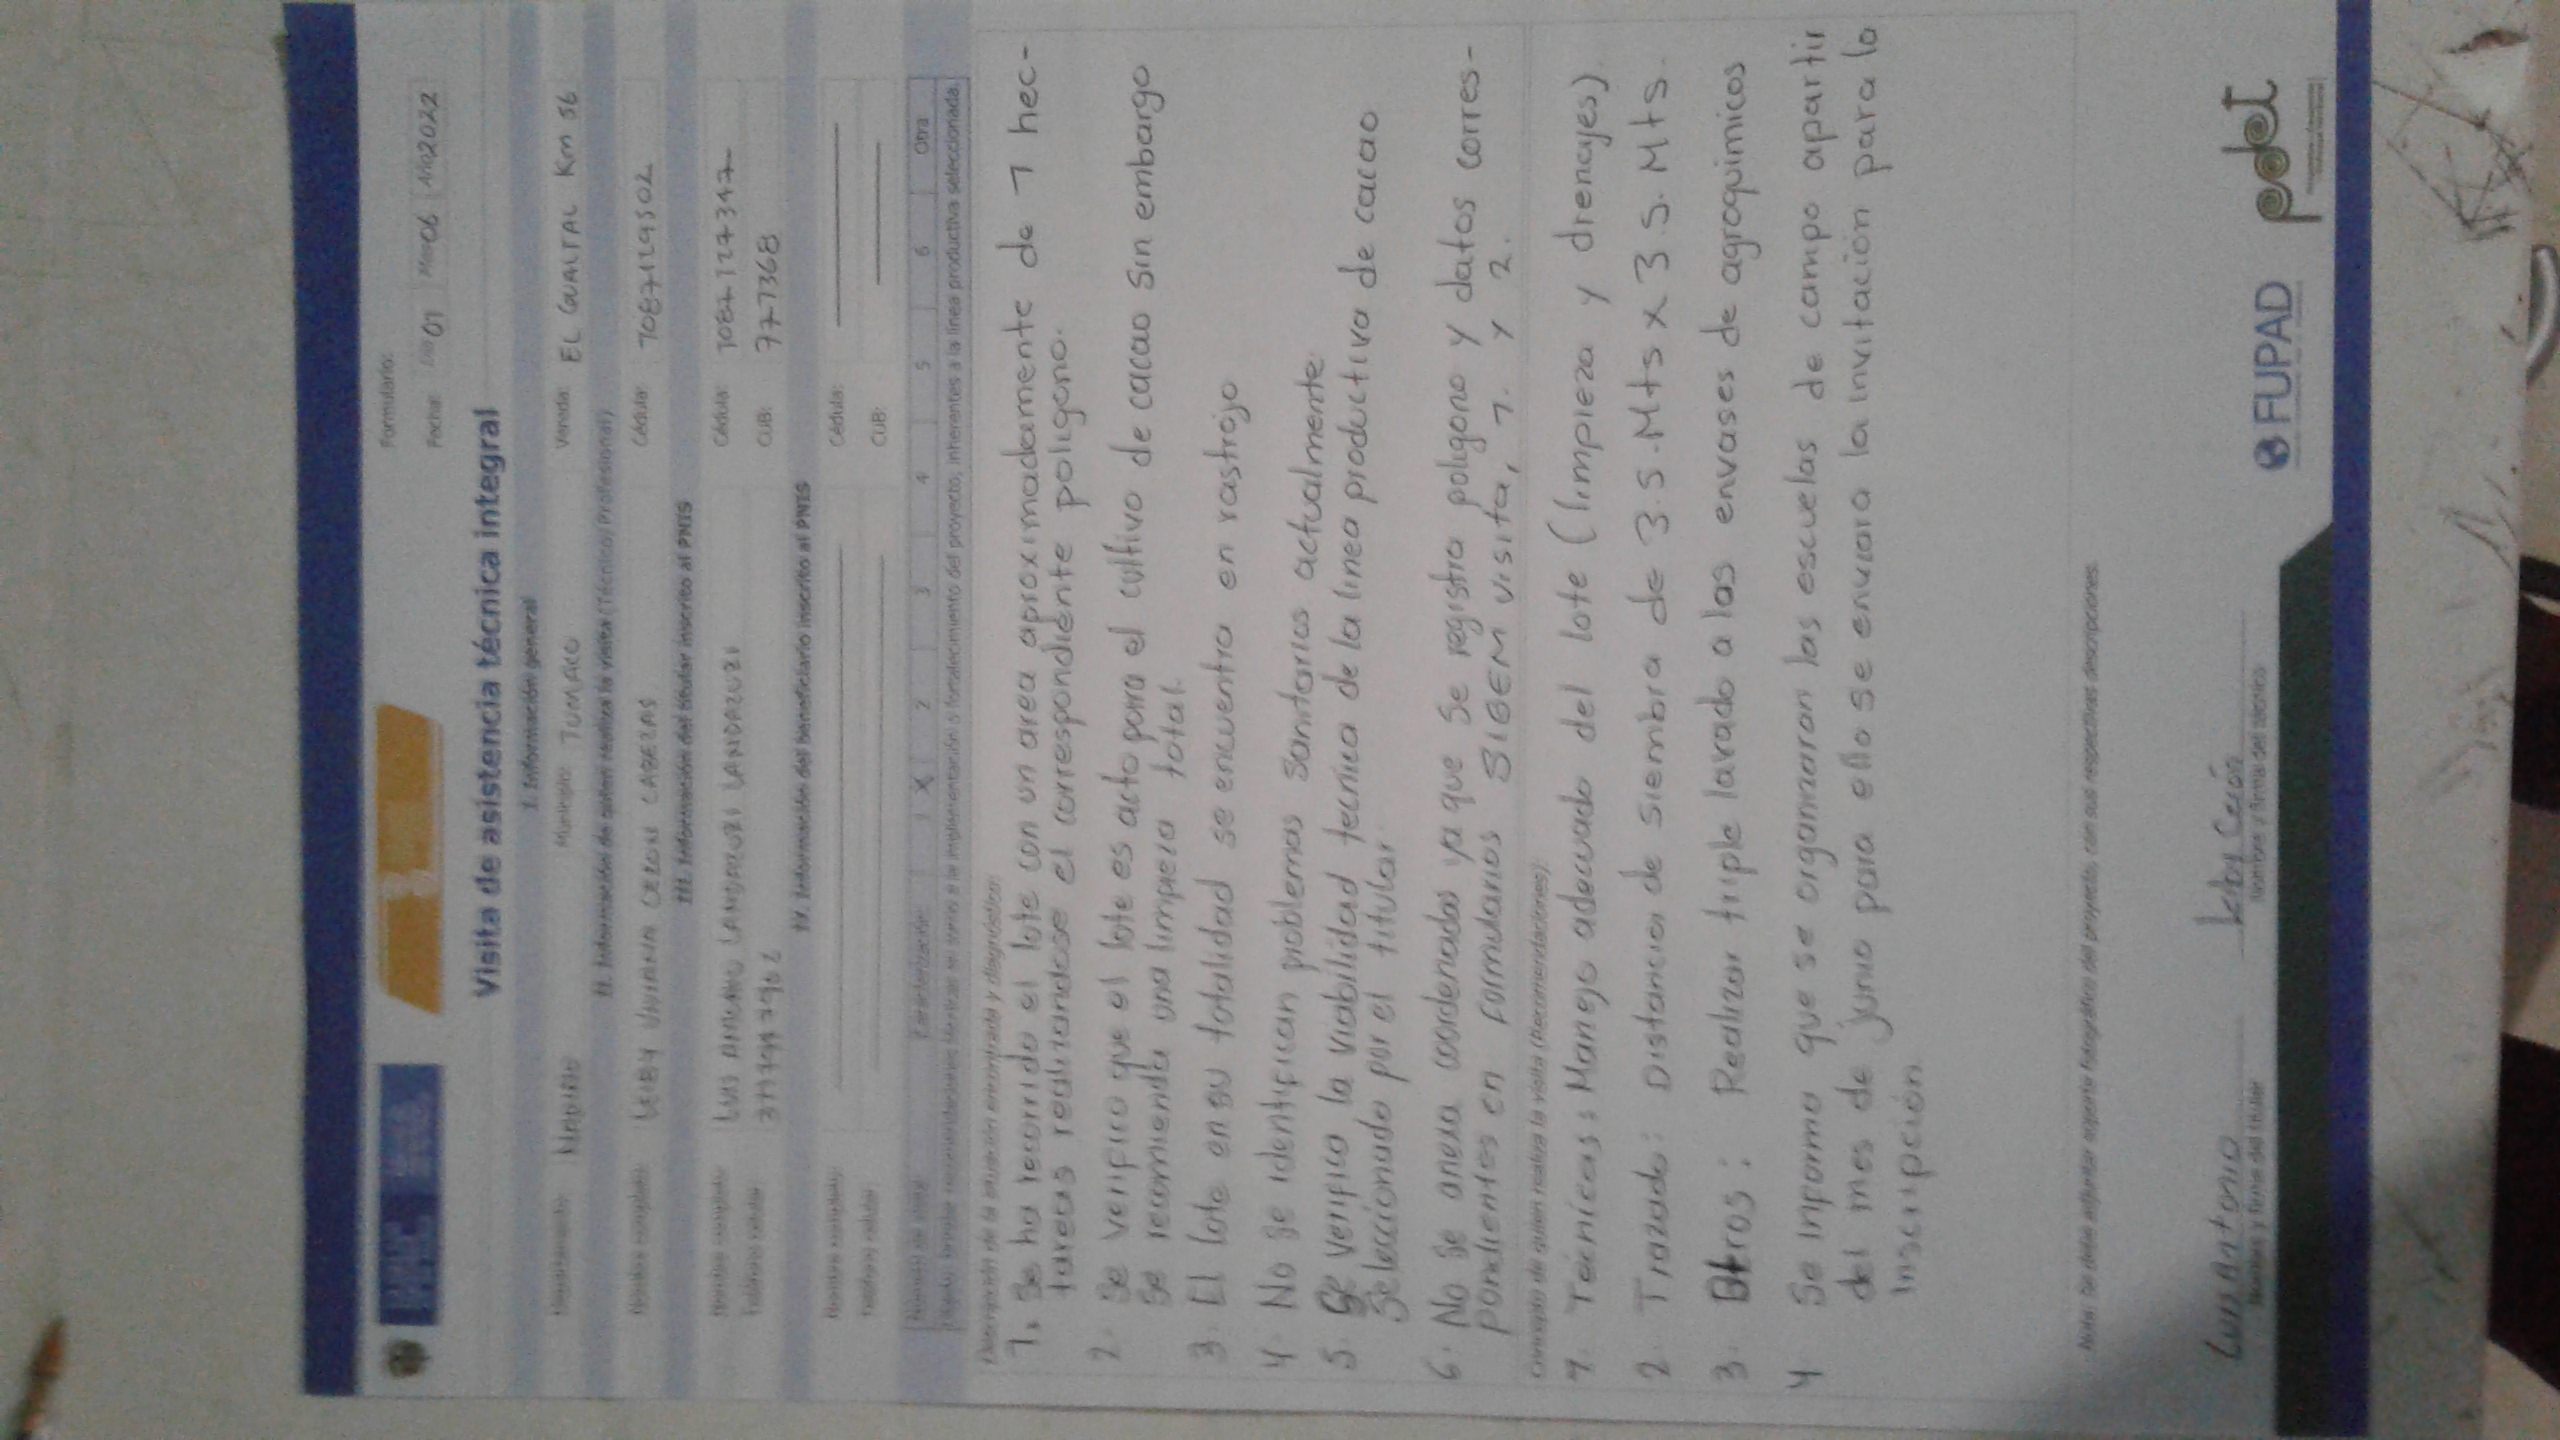 Formulario:
Fecha: Día 01 Mes 06 Año 2022
Visita de asistencia técnica integral
I. Información general
Departamento: Nariño Municipio: TUMACO Vereda: EL GUALTAL Km 56
II. Información de quien realiza la visita (Técnico/Profesional)
Nombre completo: LEIBY VIVIANA CERON CABEZAS Cédula: 1087129502
III. Información del titular inscrito al PNIS
Nombre completo: LUIS ANTONIO LANDAZURI LANDAZURI Cédula: 1087127347
Teléfono celular: CUB: 777368
IV. Información del beneficiario inscrito al PNIS
Nombre completo: Cédula:
Teléfono celular: CUB:
Número de visita: Caracterización: 1 X 2 3 4 5 6 Otra
Nota: brindar recomendaciones técnicas en torno a la implementación o fortalecimiento del proyecto, inherentes a la línea productiva seleccionada.
Descripción de la situación encontrada y diagnóstico:
1. Se ha recorrido el lote con un area aproximadamente de 1 hec-
tareas realizandose el correspondiente poligono.
2. Se verifico que el lote es acto para el cultivo de cacao sin embargo
se recomienda una limpieza total.
3. El lote en su totalidad se encuentra en rastrojo
4. No se identifican problemas sanitarios actualmente.
5. Se verifico la viabilidad tecnica de la linea productiva de cacao
Seleccionado por el titular.
6. No se anexa coordenadas ya que se registra poligono y datos corres-
pondientes en formularios SIGEM visita, 1. y 2.
Concepto de quien realiza la visita (Recomendaciones):
1. Tecnicas: Manejo adecuado del lote (limpieza y drenajes).
2. Trazado: Distancia de siembra de 3.5.Mts x 3.5.Mts.
3. Otros: Realizar triple lavado a los envases de agroquimicos
4 Se informo que se organizaran las escuelas de campo apartir
del mes de junio para ello se enviara la invitación para la
inscripción.
Nota: Se debe adjuntar soporte fotográfico del proyecto, con sus respectivas descripciones.
Luis Antonio Leiby Cerón
Nombre y firma del titular Nombre y firma del técnico
FUPAD pdet